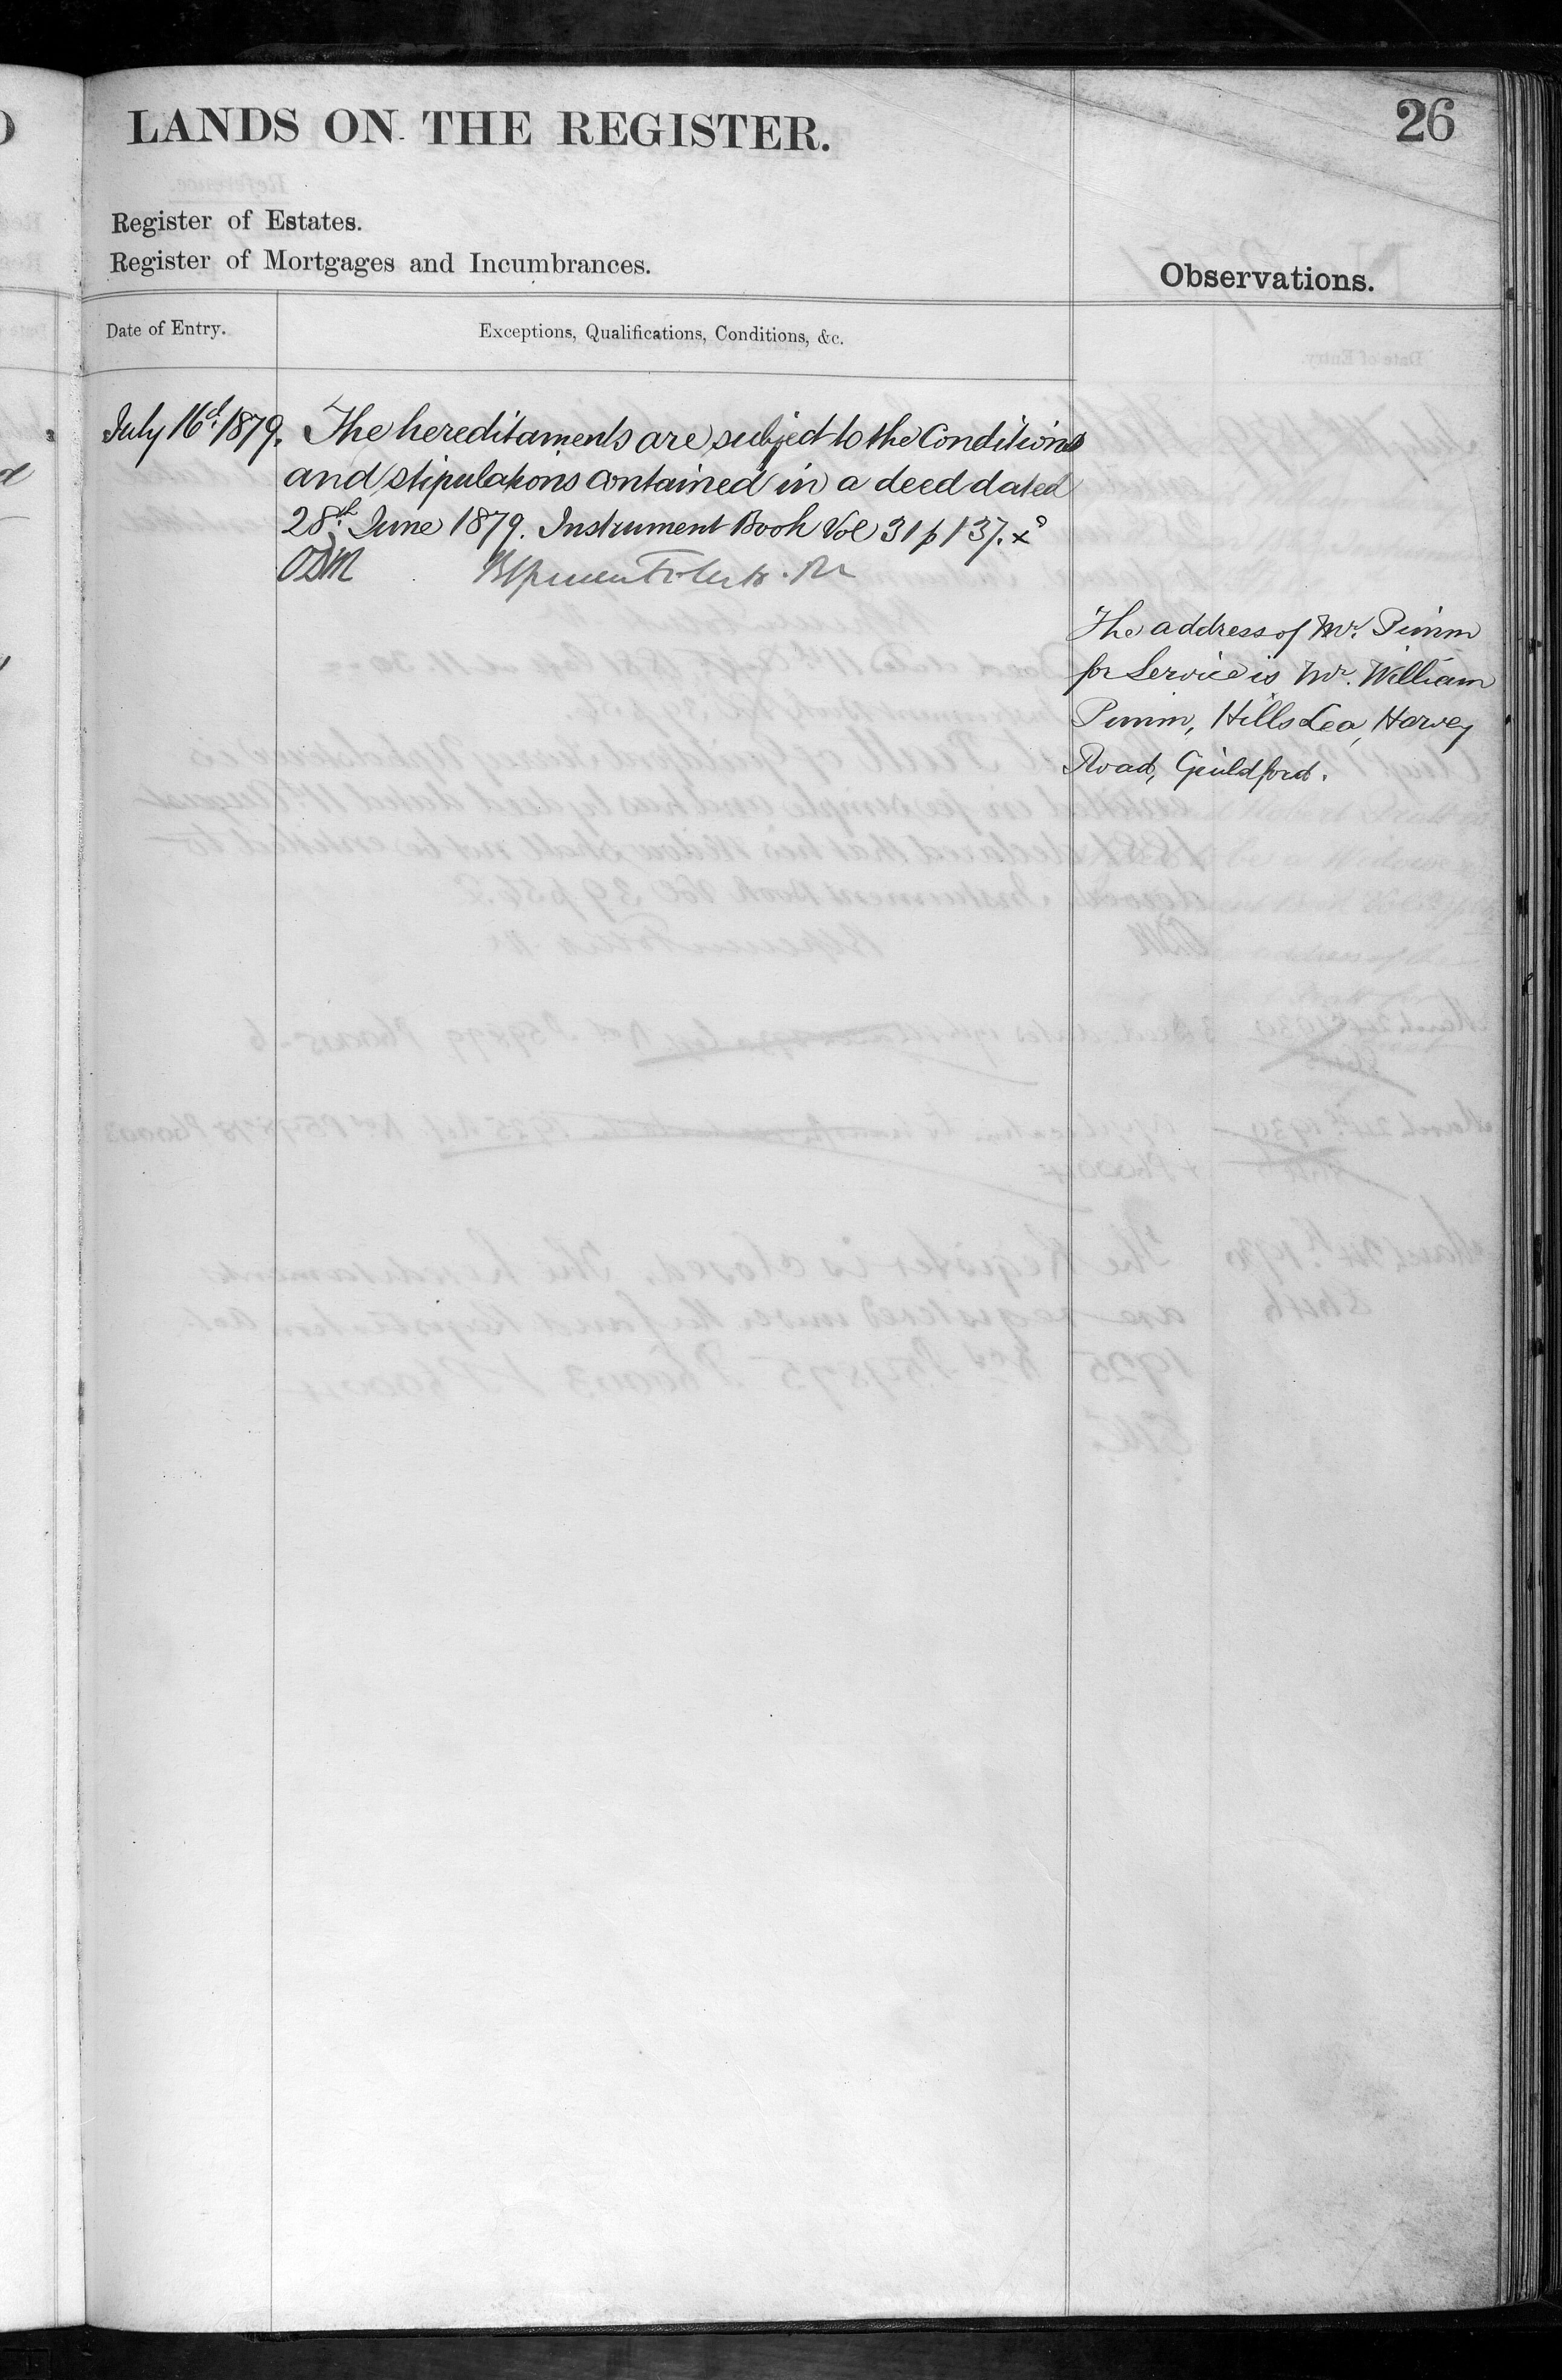 LANDS ON THE REGISTER.
26
Register of Estates.
Register of Mortgages and Incumbrances.
Observations.
Date of Entry.
Exceptions, Qualifications, Conditions, &c.
July 16th 1879. The hereditaments are subject to the Conditions
and stipulations contained in a deed dated
28th June 1879. Instrument Book Vol 31 p 137.
ODM
The address of Mr. Pimm
for Service is Mr. William
Pimm, Hills Lea, Harvey
Road, Guildford.